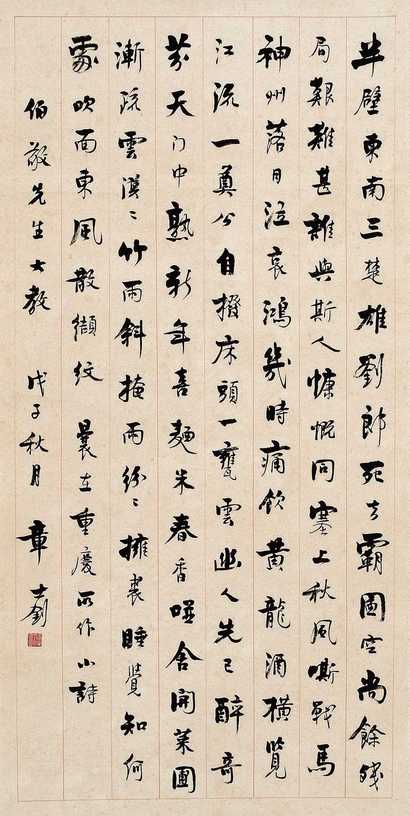 半壁東南三楚雄劉郎死去霸圖空尚餘殘
局艱難甚誰與斯人慷慨同塞上秋風嘶戰馬
神州落日泣哀鴻幾時痛飲黃龍酒橫覽
江流一奠公自撥床頭一甕雲幽人先已醉奇
芬天门中熟新年喜麵米春香舍開菜圃
漸疏雲漠〻竹雨斜掩雨紛〻擁裘睡覺知何
處吹面東風散纈紋 曩在重慶所作小詩
伯敬先生大教 戊子秋月 章士釗